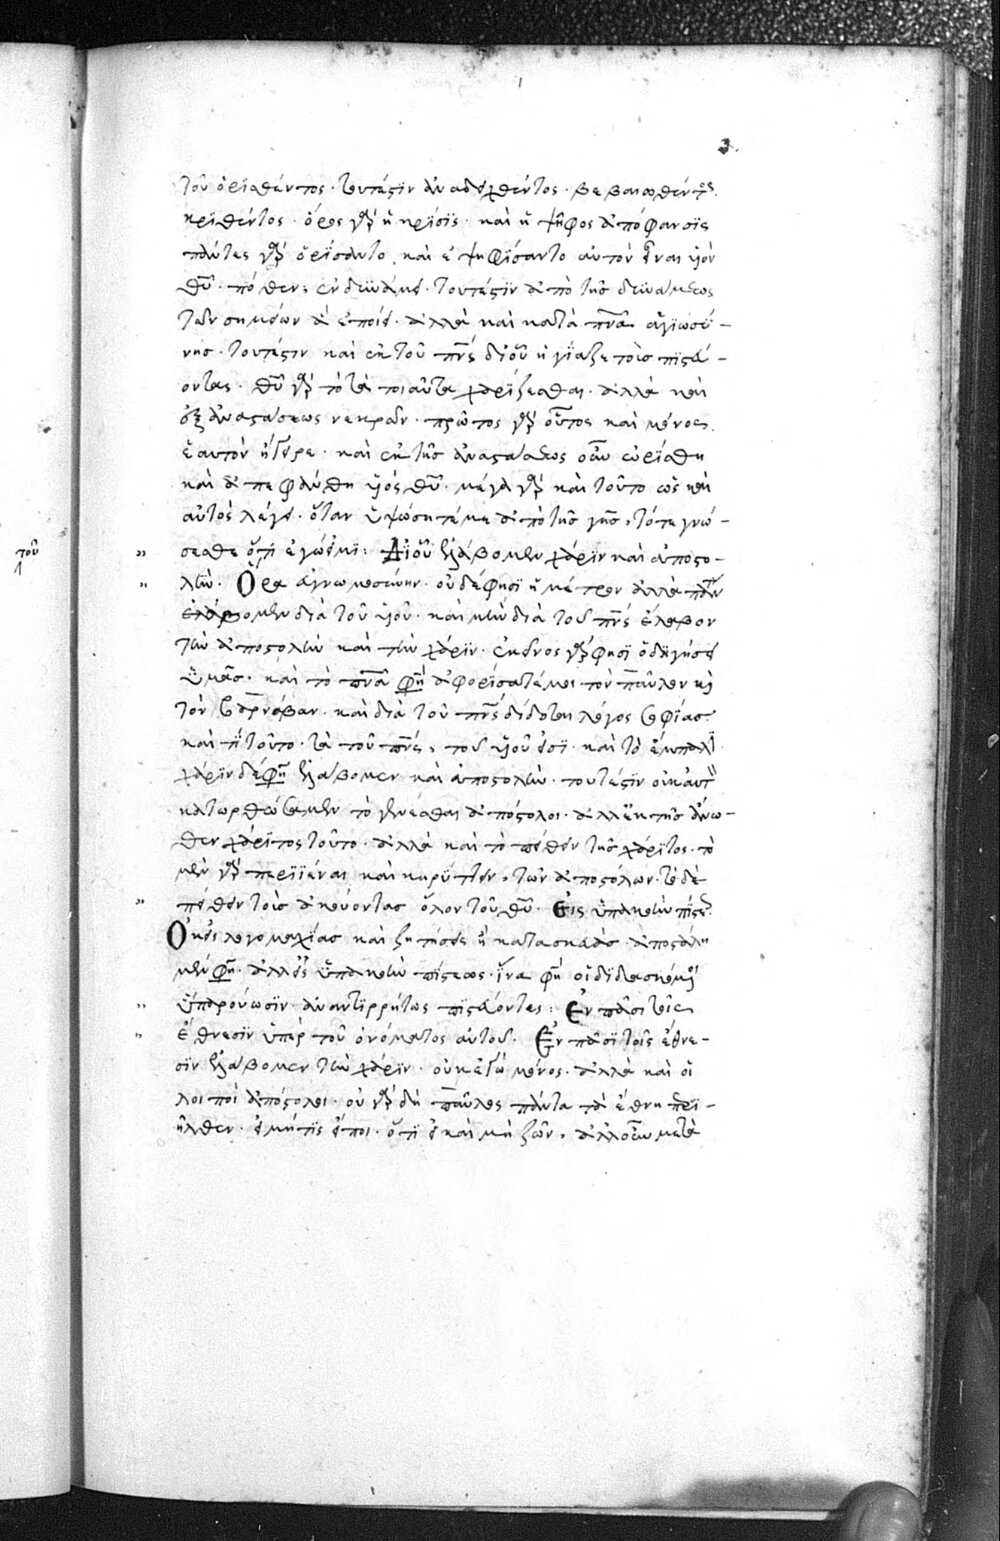 3.
τοῦ ὁρισθέντος· τουτέστιν ἀναδειχθέντος· βεβαιωθέντος
κριθέντος· ὅρος γὰρ ἡ κρίσις· καὶ ἡ ψῆφος ἀπόφανσις
πάντες γὰρ ὁρίσαντο καὶ ἐψηφίσαντο αὐτὸν εἶναι υἱὸν
θῦ· πόθεν; ἐν δυνάμει· τουτέστιν ἀπὸ τῆς δυνάμεως
τῶν σημείων ἃ ἐποίει· ἀλλὰ καὶ κατὰ πνᾶ ἁγιωσύ-
νης· τουτέστιν καὶ ἐκ τοῦ πνς δι' οὗ ἡγίαζε τοὺς πιστεύ-
οντας· θῦ γὰρ τὸ τὰ τοιαῦτα χαρίζεσθαι· ἀλλὰ καὶ
ἐξ ἀναστάσεως νεκρῶν· πρῶτος γὰρ οὗτος καὶ μόνος
ἑαυτὸν ἤγειρε· καὶ ἐκ τῆς ἀναστάσεως οὖν ὡρίσθη
καὶ ἀπεφάνθη υἱός θῦ· μέγα γὰρ καὶ τοῦτο ὡς καὶ
αὐτὸς λέγει· ὅταν ὑψώσητέ με ἀπὸ τῆς γῆς, τότε γνώ-
σεσθε ὅτι ἐγώ εἰμι: Δι' οὗ ἐλάβομεν χάριν καὶ ἀποστο-
λήν· Ὅρα εὐγνωμοσύνην· οὐδέν φησι ἡμέτερον ἀλλὰ πάντα
ἐλάβομεν διὰ τοῦ υἱοῦ· καὶ μὴν διὰ τοῦ πνς ἔλαβον
τὴν ἀποστολὴν καὶ τὴν χάριν· ἐκεῖνος γάρ φησι ὁδηγήσει
ὑμᾶς· καὶ τὸ πνᾶ φη ἀφορίσατέ μοι τὸν παῦλον κὶ
τὸν βαρνάβαν· καὶ διὰ τοῦ πνς δίδοται λόγος σοφίας
καὶ τί τοῦτο· τὰ τοῦ πνς, τοῦ υἱοῦ εἰσι· καὶ τὸ ἔμπαλι
χάριν δέ φη ἐλάβομεν καὶ ἀποστολήν· τουτέστιν οὐκ αὐτοὶ
κατωρθώσαμεν τὸ γενέσθαι ἀπόστολοι· ἀλλ' ἐκ τῆς ἄνω-
θεν χάριτος τοῦτο· ἀλλὰ καὶ τὸ πείθειν τῆς χάριτος· τὸ
μὲν γὰρ περιϊέναι καὶ κηρύττειν, τῶν ἀποστόλων· τὸ δὲ
πείθειν τοὺς ἀκούοντας ὅλον τοῦ θῦ· Εἰς ὑπακοὴν πίστεως
Οὐκ εἰς λογομαχίας καὶ ζητήσεις ἢ κατασκευὰς ἀπεστάλη
μέν φη· ἀλλ' εἰς ὑπακοὴν πίστεως· ἵνα φη οἱ διδασκόμενοι
ὑπακούωσιν ἀναντιρρήτως πιστεύοντες: Ἐν πᾶσι τοῖς
ἔθνεσιν ὑπὲρ τοῦ ὀνόματος αὐτοῦ· Ἐν πᾶσι τοῖς ἔθνε-
σιν ἐλάβομεν τὴν χάριν· οὐκ ἐγὼ μόνος· ἀλλὰ καὶ οἱ
λοιποὶ ἀπόστολοι· οὐ γὰρ δὴ παῦλος πάντα τὰ ἔθνη περι-
ῆλθεν· εἰ μή τις εἴποι· ὅτι εἰ καὶ μὴ ζῶν, ἀλλ' οὖν μετὰ
τοῦ